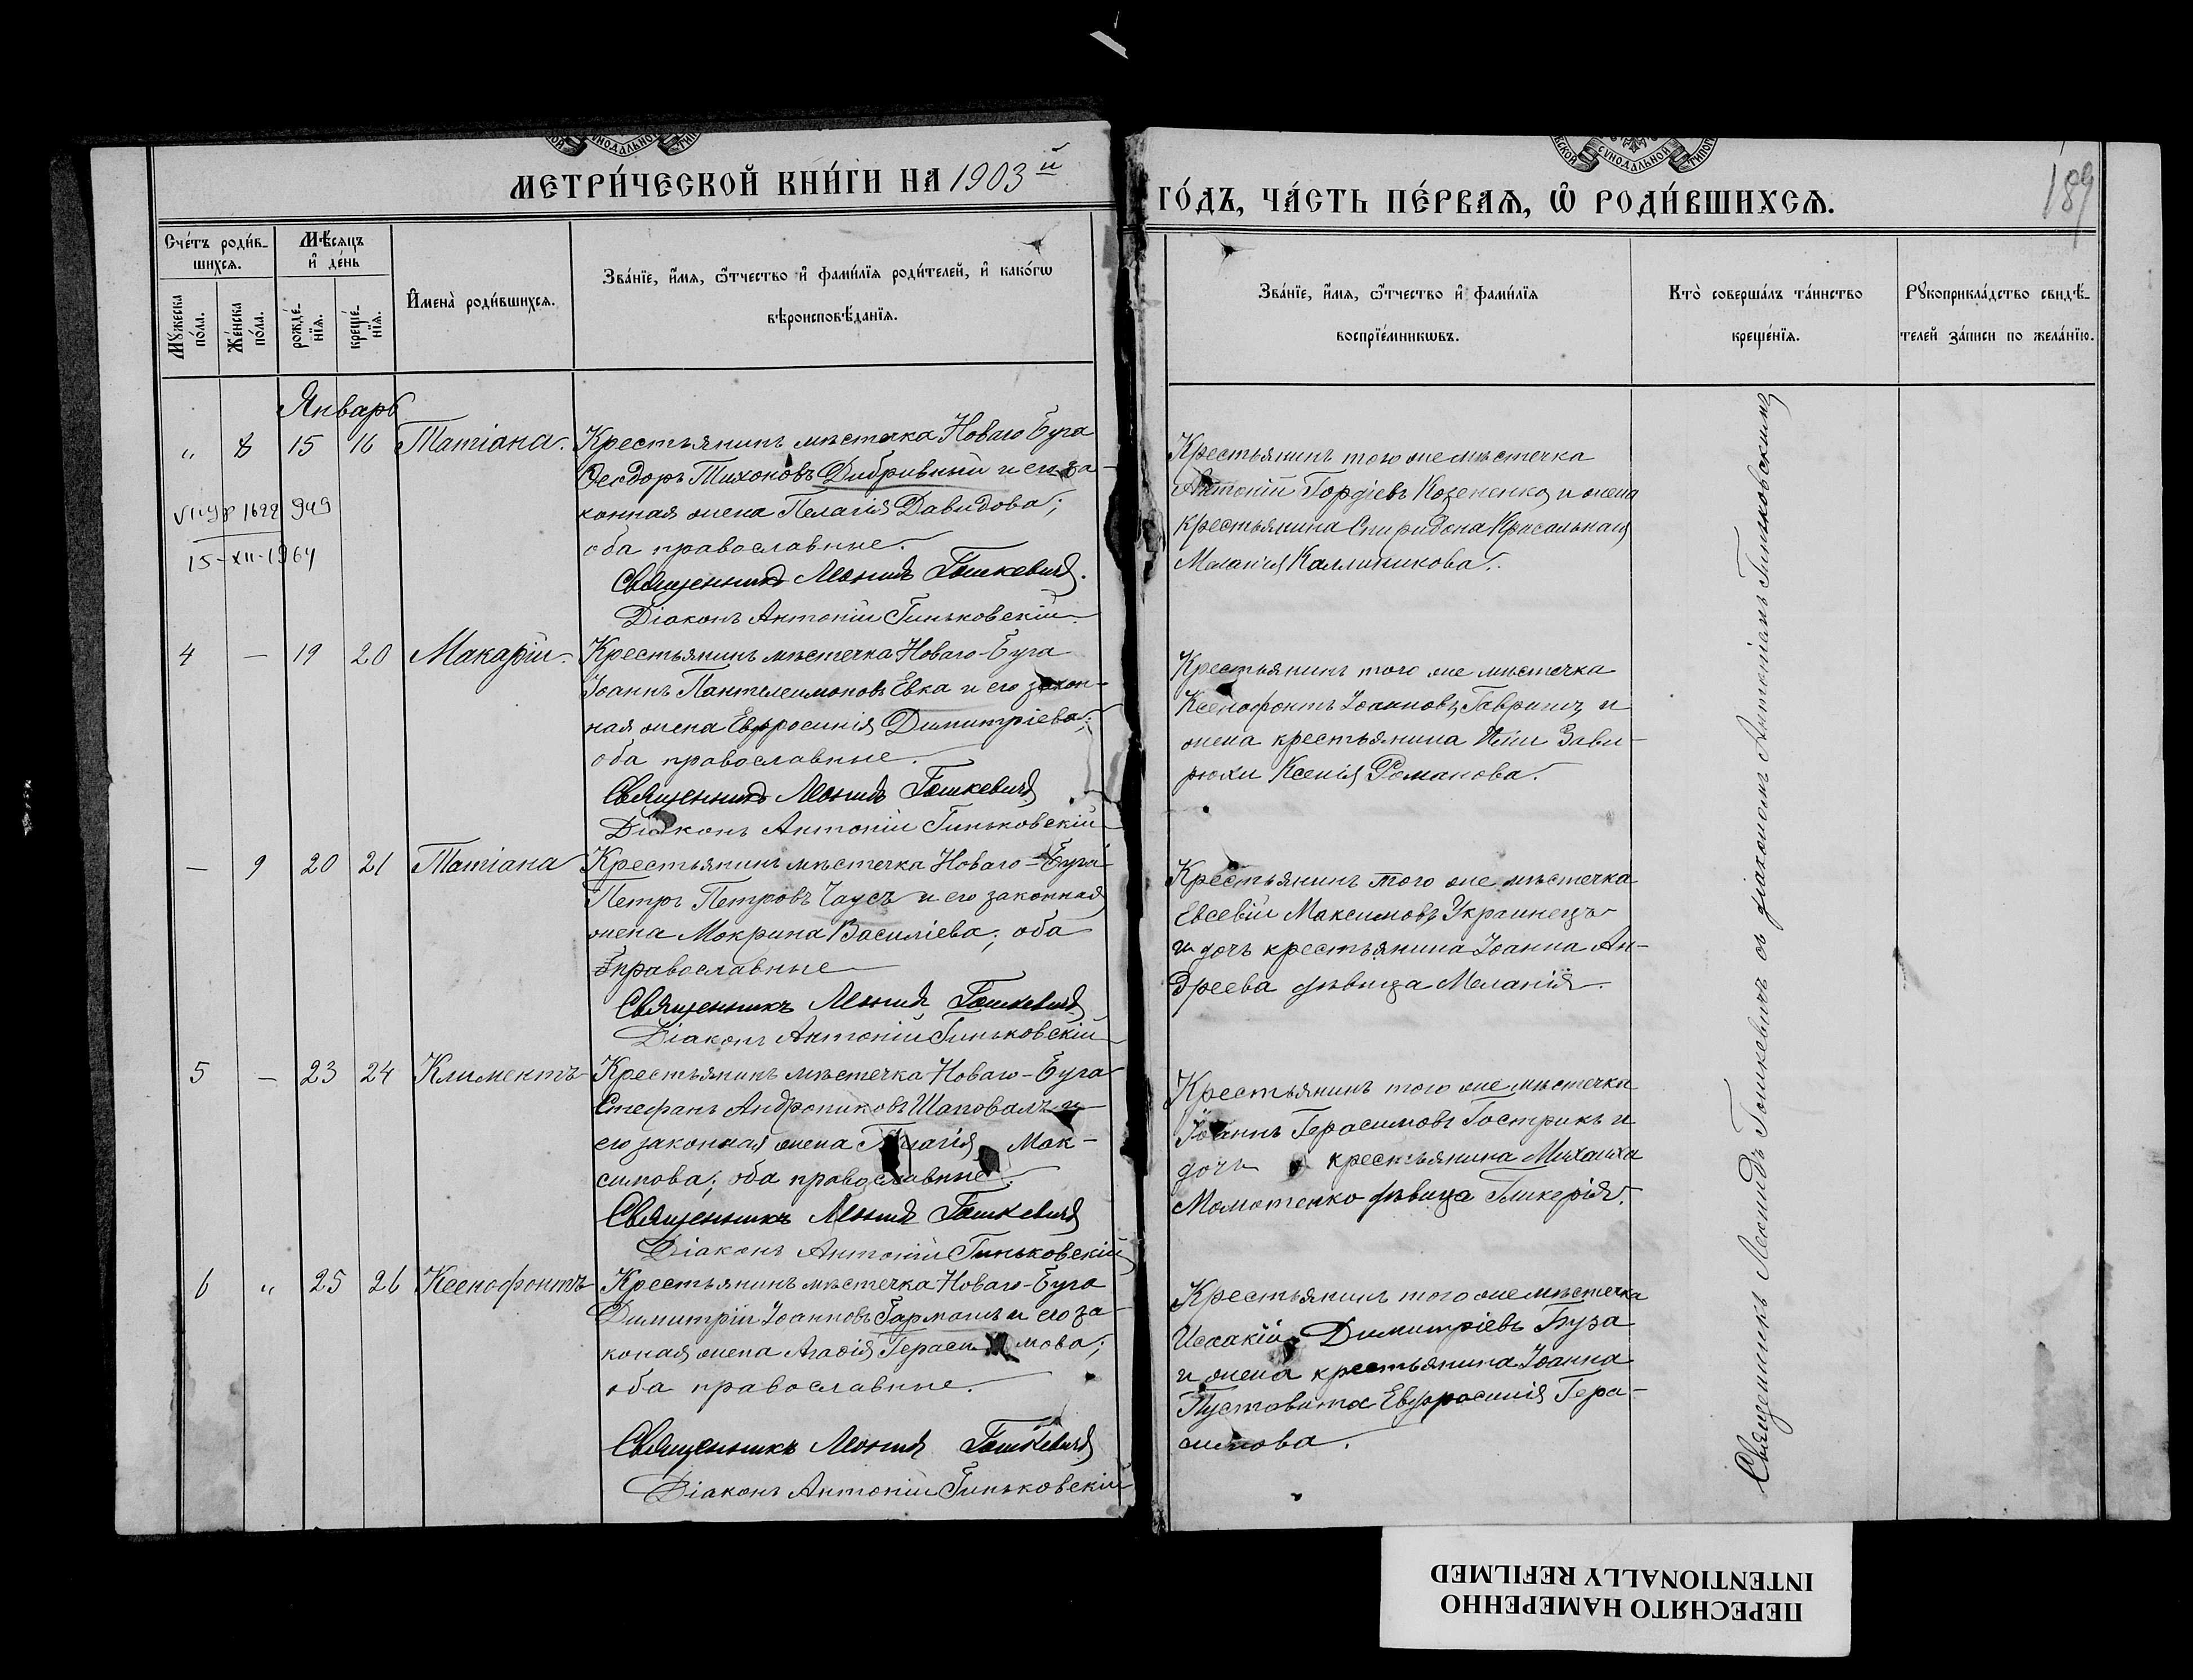 МЕТРИ́ЧЕСКОЙ КНИ́ГИ НА 1903й
ГО́ДЪ, ЧА́СТЬ ПЕ́РВАѦ, Ѿ РОДИ́ВШИХСѦ.
189
Сче́тъ роди́в-
шихсѧ.
Мѣ́сѧцъ
и҆ де́нь
Мꙋ́жеска
по́ла.
Же́нска
по́ла.
рожде́-
нїѧ.
креще́-
нїѧ.
И҆мена̀ роди́вшихсѧ.
Зва́нїе, и҆́мѧ, ѻ҆́тчество и҆ фами́лїѧ роди́телей, и҆ како́гѡ
вѣроисповѣ́данїѧ.
Зва́нїе, и҆́мѧ, ѻ҆́тчество и҆ фами́лїѧ
воспрїе́мникѡвъ.
Кто̀ соверша́лъ та́инство
креще́нїѧ.
Рꙋкоприкла́дство свидѣ́-
телей за́писи по жела́нїю.
Январь
" 8 15 16 Татіана.
Крестьянинъ мѣстечка Новаго Буга
Ѳеодоръ Тихоновъ Дибривный и его за-
конная жена Пелагія Давидова;
оба православные.
Священникъ Леонидъ Гошкевичъ.
Діаконъ Антоній Гиньковскій
1622 949
15-XII-1964
Крестьянинъ того же мѣстечка
Антоній Гордіевъ Козененко, и жена
крестьянина Спиридона
Меланія Каллиникова.
4 — 19 20 Макарій.
Крестьянинъ мѣстечка Новаго-Буга
Іоаннъ Пантелеимоновъ Евка и его закон-
ная жена Евфросинія Димитріева;
оба православные.
Священникъ Леонидъ Гошкевичъ
Діаконъ Антоній Гиньковскій
Крестьянинъ того же мѣстечка
Ксенофонтъ Іоанновъ и
жена крестьянина Зави-
рюхи Ксенія Романова.
— 9 20 21 Татіана
Крестьянинъ мѣстечка Новаго-Буга
Петръ Петровъ Чаусъ и его законная
жена Мокрина Василіева; оба
православные
Священникъ Леонидъ Гошкевичъ
Діаконъ Антоній Гиньковскій
Крестьянинъ того же мѣстечка
Евсевій Максимовъ Украинецъ
и дочь крестьянина Іоанна Ан-
дреева дѣвица Меланія.
5 — 23 24 Климентъ
Крестьянинъ мѣстечка Новаго-Буга
Стефанъ Андрониковъ Шаповалъ и
его законная жена Мак-
симова; оба православные.
Священникъ Леонидъ Гошкевичъ
Діаконъ Антоній Гиньковскій
Крестьянинъ того же мѣстечка
Іоаннъ Герасимовъ Гострикъ и
дочь крестьянина Михаила
Момотенко дѣвица Гликерія.
6 " 25 26 Ксенофонтъ
Крестьянинъ мѣстечка Новаго-Буга
Димитрій Іоанновъ Гармашъ и его за-
коная жена Агаѳія Герасимова;
оба православные.
Священникъ Леонидъ Гошкевичъ
Діаконъ Антоній Гиньковскій
Крестьянинъ того же мѣстечка
Исаакій Димитріевъ Буза
и жена крестьянина Іоанна
Пустовита Евфросинія Гера-
симова.
Священникъ Леонидъ Гошкевичъ съ діакономъ Антоніемъ Гиньковскимъ
ПЕРЕСНЯТО НАМЕРЕННО
INTENTIONALLY REFILMED